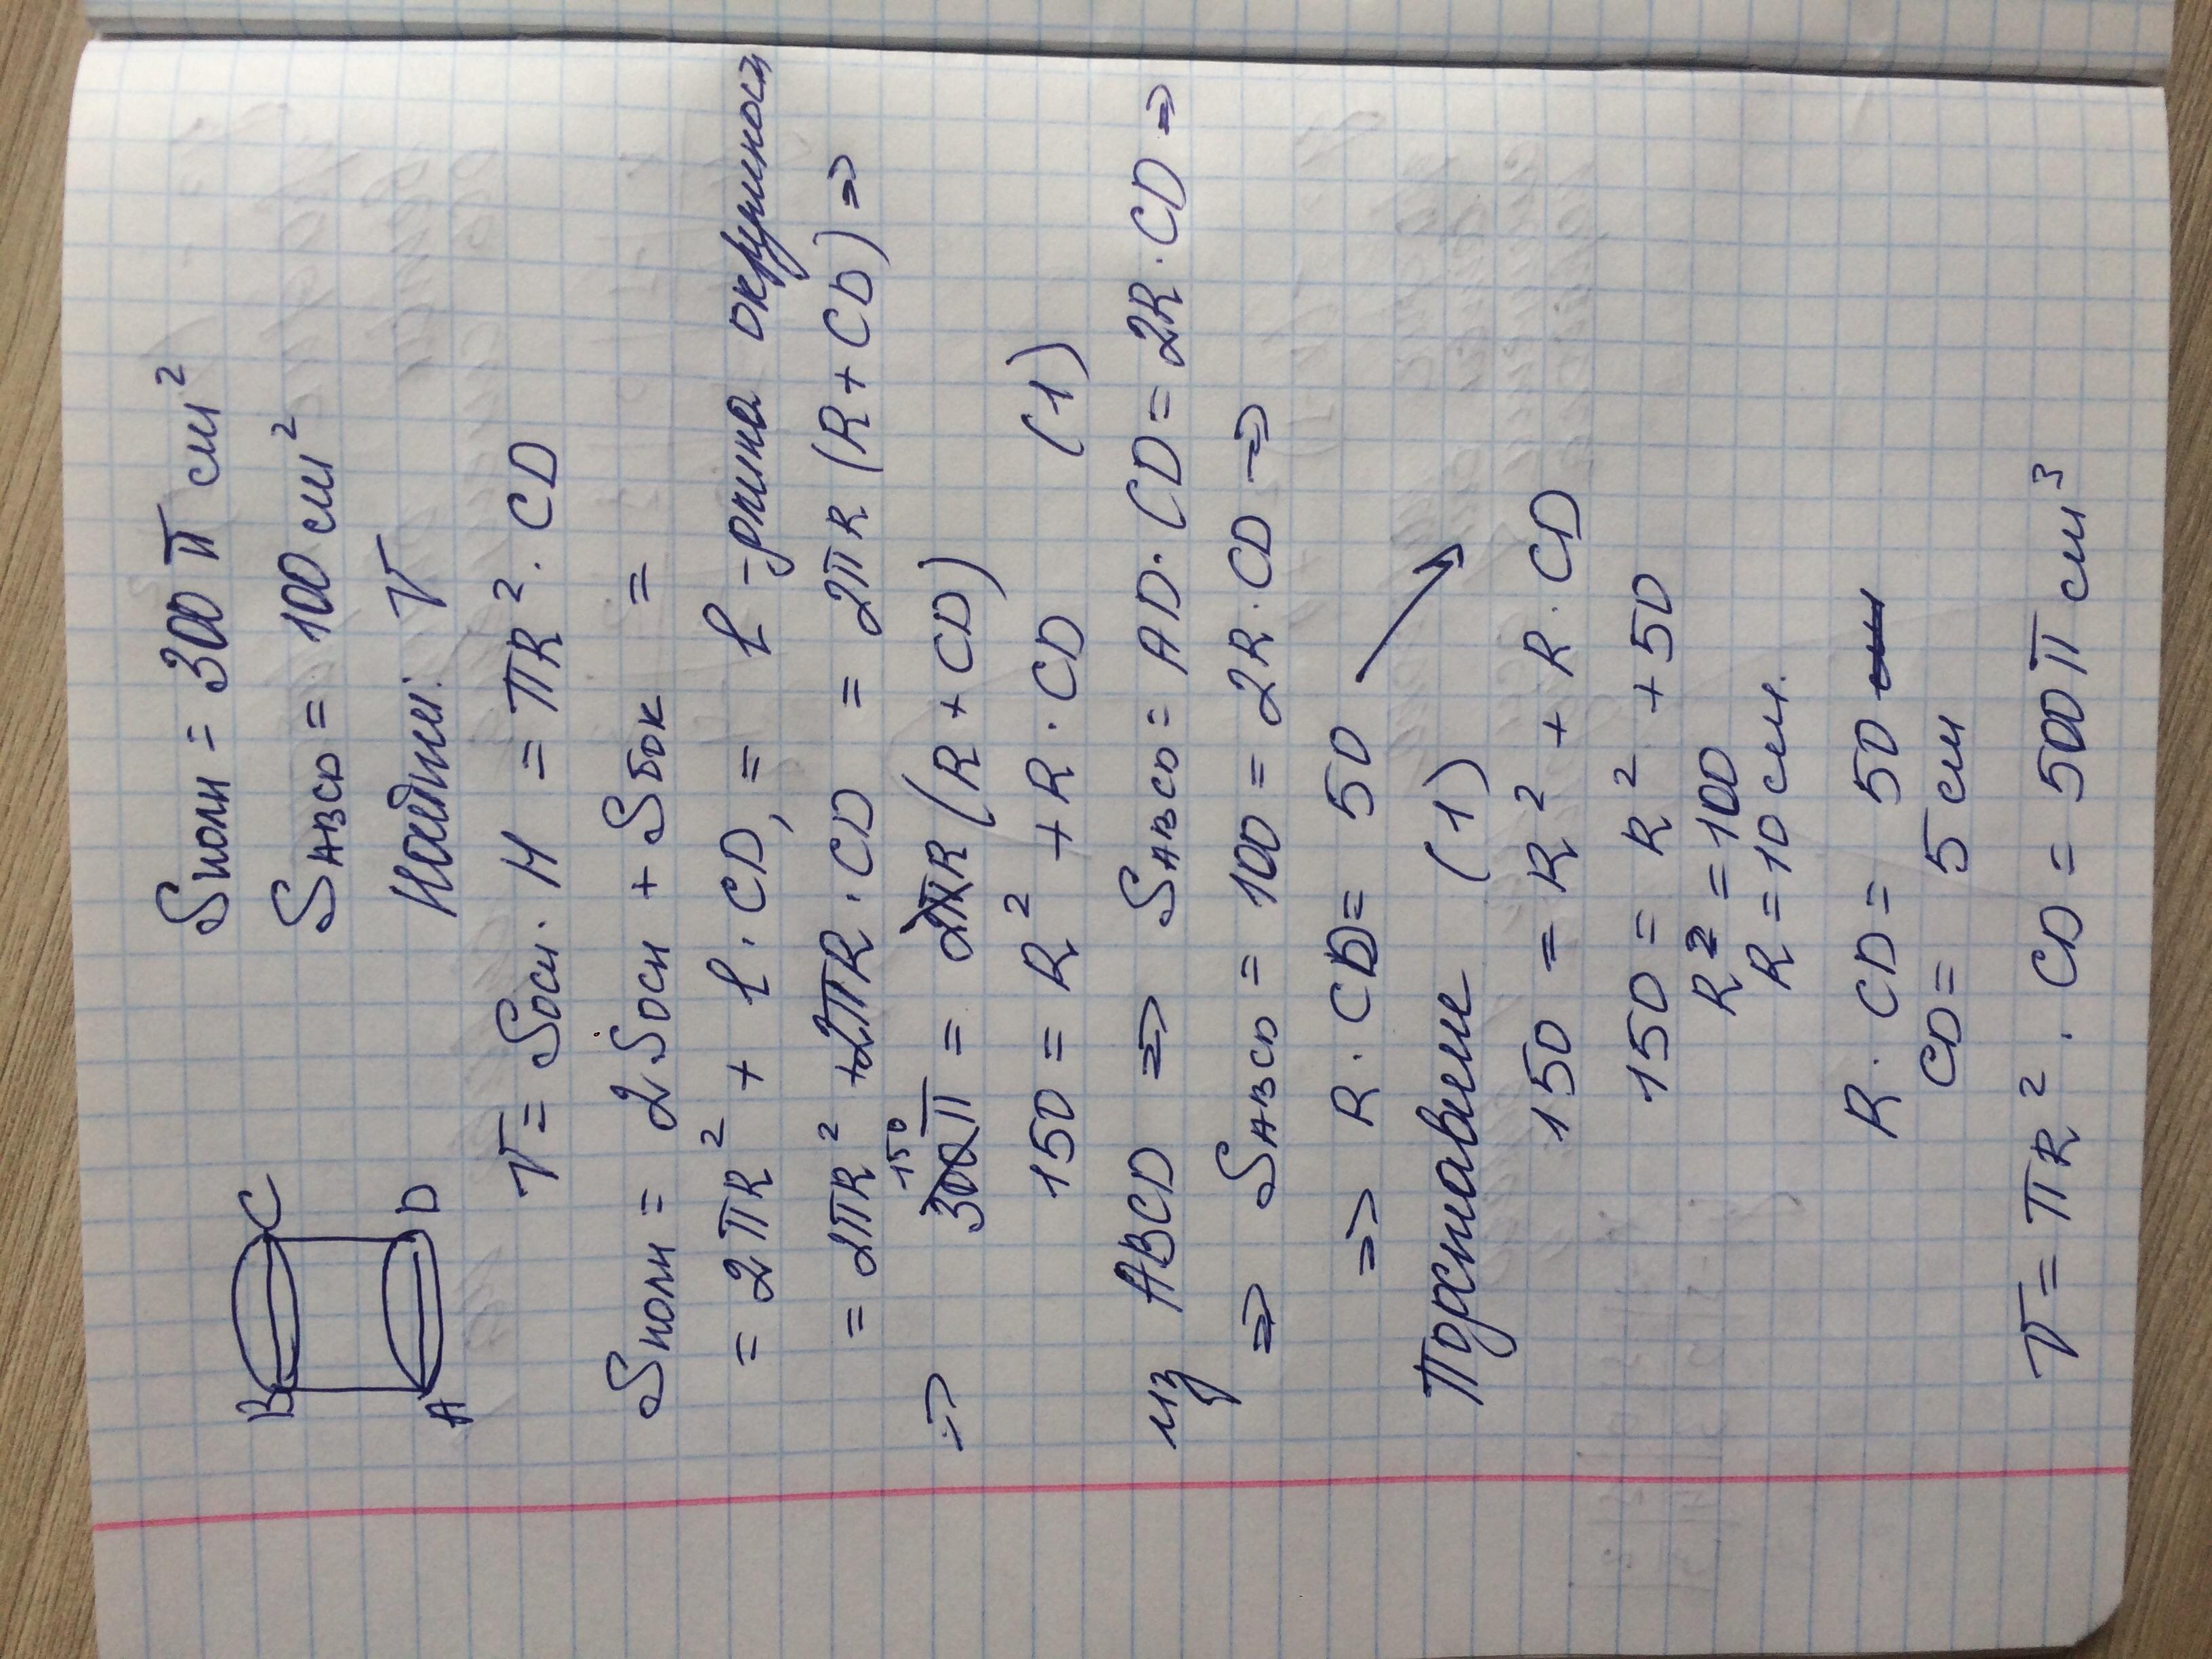 B C
A D
Sполн = 300 π см²
SABCD = 100 см²
Найти: V
V = Sосн · H = πR² · CD
Sполн = 2Sосн + Sбок =
= 2πR² + l · CD, = l - длина окружност
= 2πR² + 2πR · CD = 2πR (R + CD) ⇒
150
⇒ 300π = 2πR (R + CD)
150 = R² + R · CD (1)
из ABCD ⇒ SABCD = AD · CD = 2R · CD ⇒
⇒ SABCD = 100 = 2R · CD ⇒
⇒ R · CD = 50
Подставим (1)
150 = R² + R · CD
150 = R² + 50
R² = 100
R = 10 см.
R · CD = 50
CD = 5 см
V = πR² · CD = 500π см³